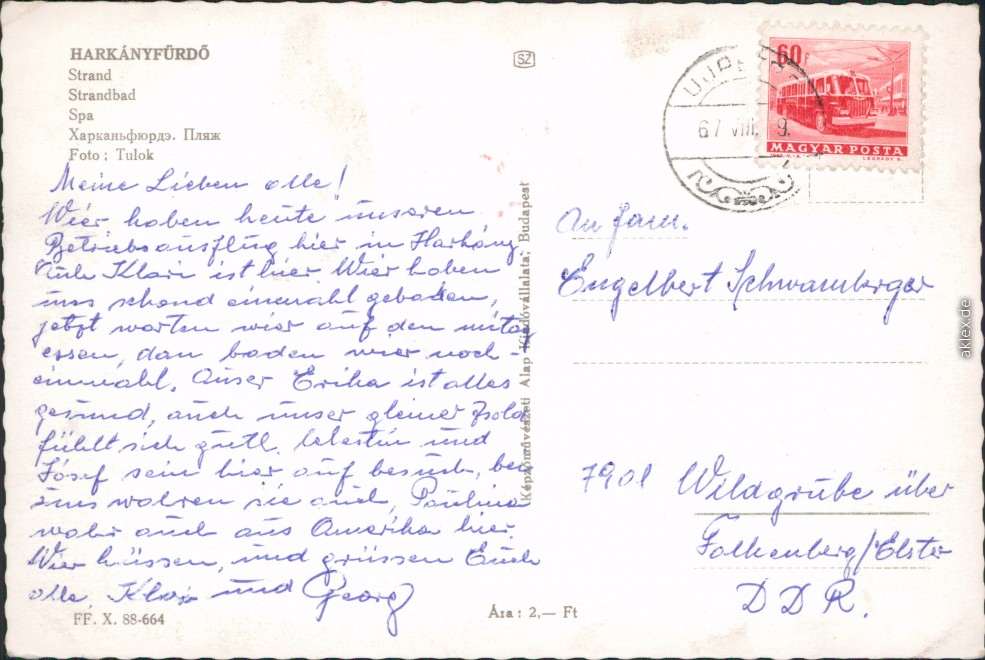 HARKÁNYFÜRDŐ
Strand
Strandbad
Spa
Харканьфюрдэ. Пляж
Foto : Tulok
Meine Lieben alle!
Wier haben heute unseren
Betriebsausflug hier in Harkány
Klari ist hier Wier haben
uns schond einmahl gebaden,
jetzt warten wier auf den mitag
essen, dan baden wier noch-
einmahl. Auser Erika ist alles
gesund, auch unser gleiner Zsold
fühlt sich gutt. und
Josef sein hier auf besuch, bei
uns wahren sie auch, Paulina
wahr auch aus Amerika hier.
Wier küssen, und grüssen Euch
alle, Klari und Georg
FF. X. 88-664
Ára : 2,— Ft
Képzőművészeti Alap Kiadóvállalata, Budapest
SZ
UJPEST
67 VIII. 9.
60f
MAGYAR POSTA
An fam.
Engelbert Schwamberger
7901 Wildgrube über
Falkenberg/Elster
DDR.
aklex.de